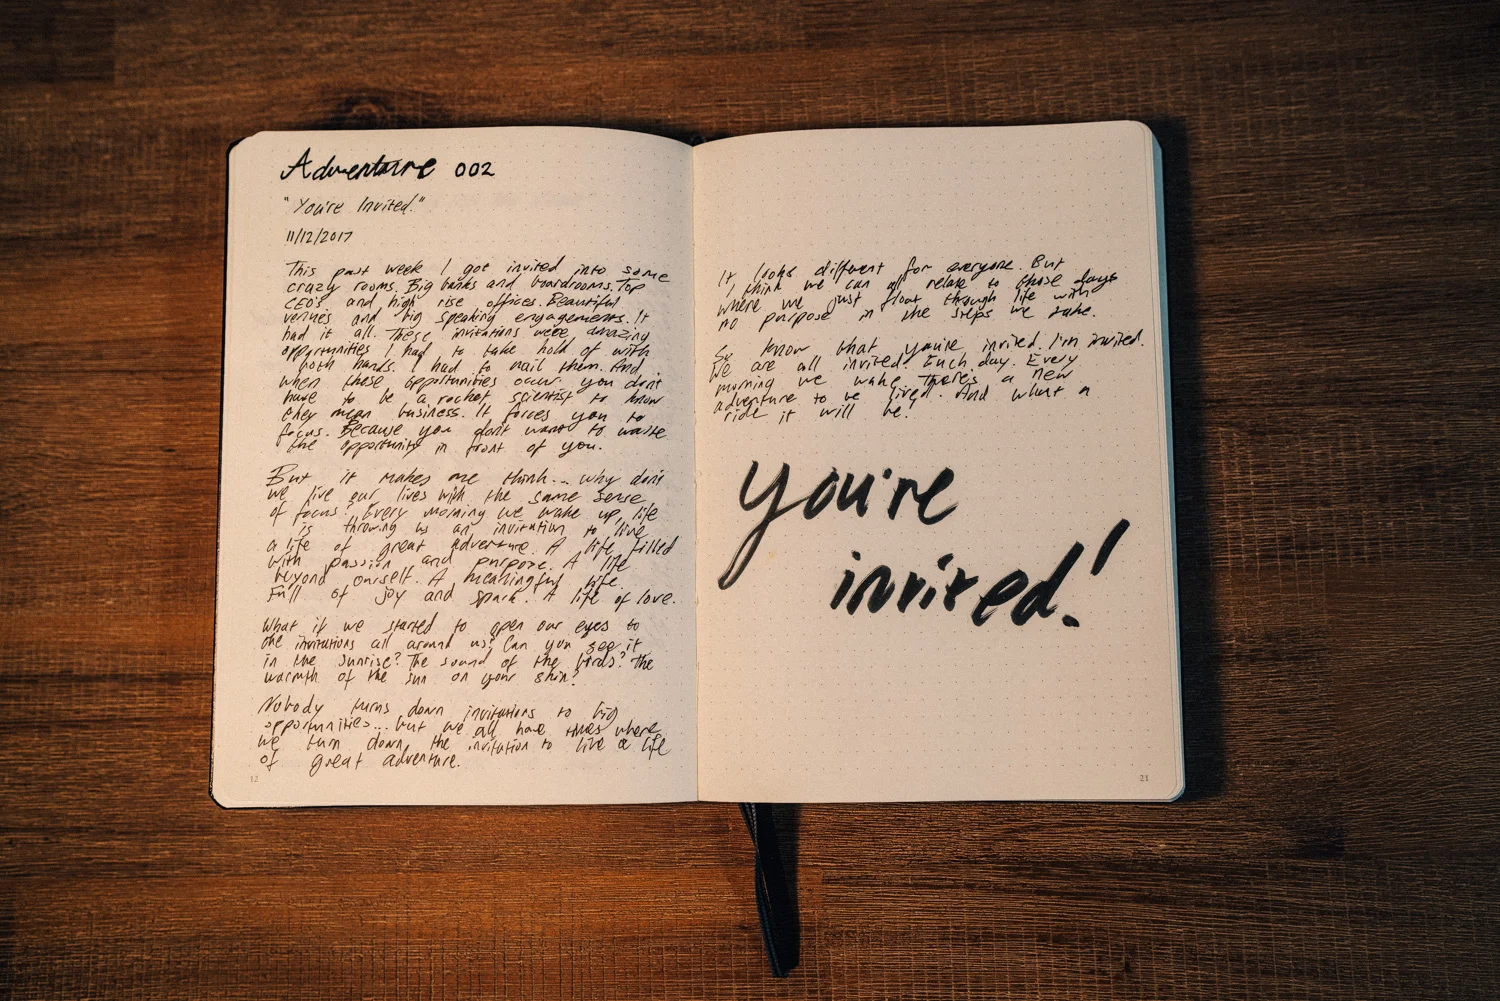 Adventure 002
"You're Invited."
11/12/2017
This past week I got invited into some
crazy rooms. Big banks and boardrooms. Top
CEO's and high rise offices. Beautiful
venues and big speaking engagements. It
had it all. These invitations were amazing
opportunities I had to take hold of with
both hands. I had to nail them. And
when these opportunities occur you don't
have to be a rocket scientist to know
they mean business. It forces you to
focus. Because you don't want to waste
the opportunity in front of you.
But it makes me think... why don't
we live our lives with the same sense
of focus? Every morning we wake up, life
is throwing us an invitation to live
a life of great adventure. A life filled
with passion and purpose. A life
beyond ourself. A meaningful life.
Full of joy and spark. A life of love.
What if we started to open our eyes to
the invitations all around us? Can you see it
in the sunrise? The sound of the birds? The
warmth of the sun on your skin?
Nobody turns down invitations to big
opportunities... but we all have times where
we turn down the invitation to live a life
of great adventure.
12
It looks different for everyone. But
I think we can all relate to those days
where we just float through life with
no purpose in the steps we take.
So know that you're invited. I'm invited.
We are all invited. Each day. Every
morning we wake there's a new
adventure to be lived. And what a
ride it will be!
you're
invited!
21